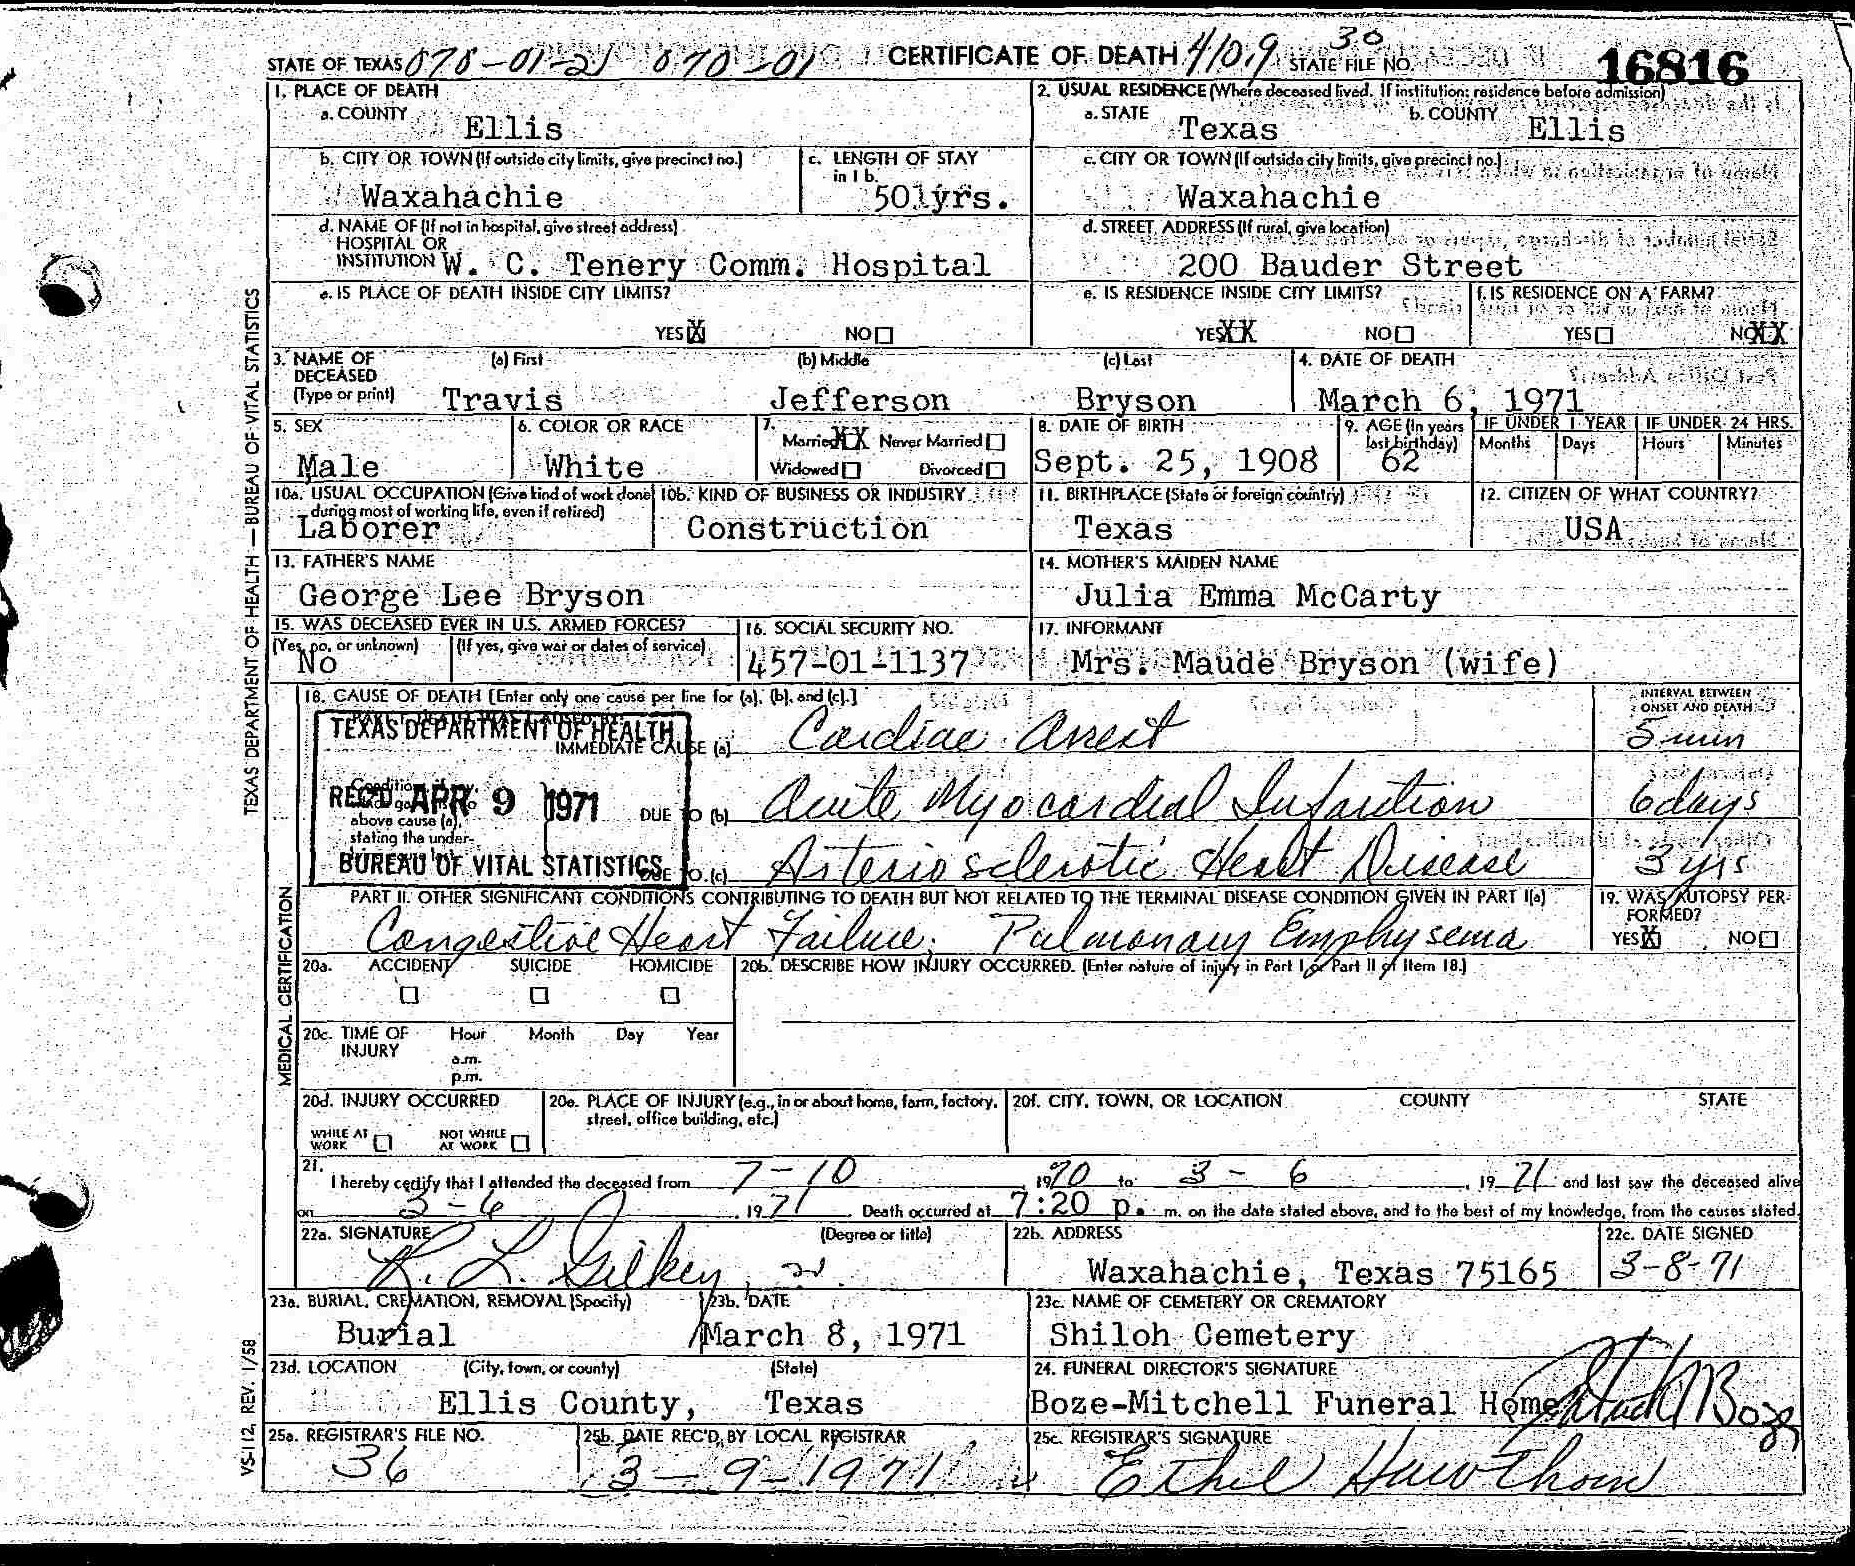 STATE OF TEXAS 078-01-21 070-01 CERTIFICATE OF DEATH 4109 30 STATE FILE NO. 16816
1. PLACE OF DEATH
a. COUNTY Ellis
2. USUAL RESIDENCE (Where deceased lived. If institution: residence before admission)
a. STATE Texas b. COUNTY Ellis
b. CITY OR TOWN (If outside city limits, give precinct no.) Waxahachie
c. LENGTH OF STAY in 1 b. 50 yrs.
c. CITY OR TOWN (If outside city limits, give precinct no.) Waxahachie
d. NAME OF (If not in hospital, give street address)
HOSPITAL OR
INSTITUTION W. C. Tenery Comm. Hospital
d. STREET ADDRESS (If rural, give location)
200 Bauder Street
e. IS PLACE OF DEATH INSIDE CITY LIMITS?
YES X NO
e. IS RESIDENCE INSIDE CITY LIMITS?
YES XX NO
f. IS RESIDENCE ON A FARM?
YES NO XX
3. NAME OF DECEASED (Type or print)
(a) First Travis
(b) Middle Jefferson
(c) Last Bryson
4. DATE OF DEATH
March 6, 1971
5. SEX
Male
6. COLOR OR RACE
White
7. Married XX Never Married
Widowed Divorced
8. DATE OF BIRTH
Sept. 25, 1908
9. AGE (In years last birthday)
62
IF UNDER 1 YEAR IF UNDER 24 HRS.
Months Days Hours Minutes
10a. USUAL OCCUPATION (Give kind of work done during most of working life, even if retired)
Laborer
10b. KIND OF BUSINESS OR INDUSTRY
Construction
11. BIRTHPLACE (State or foreign country)
Texas
12. CITIZEN OF WHAT COUNTRY?
USA
13. FATHER'S NAME
George Lee Bryson
14. MOTHER'S MAIDEN NAME
Julia Emma McCarty
15. WAS DECEASED EVER IN U.S. ARMED FORCES?
(Yes, no, or unknown) (If yes, give war or dates of service)
No
16. SOCIAL SECURITY NO.
457-01-1137
17. INFORMANT
Mrs. Maude Bryson (wife)
18. CAUSE OF DEATH [Enter only one cause per line for (a), (b), and (c).]
INTERVAL BETWEEN ONSET AND DEATH
TEXAS DEPARTMENT OF HEALTH
REC'D APR 9 1971
BUREAU OF VITAL STATISTICS
IMMEDIATE CAUSE (a) Cardiac Arrest 5 min
above cause (a),
stating the under-
DUE TO (b) Acute Myocardial Infarction 6 days
DUE TO (c) Arteriosclerotic Heart Disease 3 yrs
PART II. OTHER SIGNIFICANT CONDITIONS CONTRIBUTING TO DEATH BUT NOT RELATED TO THE TERMINAL DISEASE CONDITION GIVEN IN PART I(a)
Congestive Heart Failure; Pulmonary Emphysema
19. WAS AUTOPSY PERFORMED?
YES X NO
20a. ACCIDENT SUICIDE HOMICIDE
20b. DESCRIBE HOW INJURY OCCURRED. (Enter nature of injury in Part I or Part II of Item 18.)
20c. TIME OF INJURY Hour Month Day Year
a.m.
p.m.
20d. INJURY OCCURRED
WHILE AT WORK NOT WHILE AT WORK
20e. PLACE OF INJURY (e.g., in or about home, farm, factory, street, office building, etc.)
20f. CITY, TOWN, OR LOCATION COUNTY STATE
21.
I hereby certify that I attended the deceased from 7-10, 1970 to 3-6, 1971 and last saw the deceased alive
on 3-6, 1971. Death occurred at 7:20 p. m. on the date stated above, and to the best of my knowledge, from the causes stated.
22a. SIGNATURE (Degree or title)
R. L. Gilkey
22b. ADDRESS
Waxahachie, Texas 75165
22c. DATE SIGNED
3-8-71
23a. BURIAL, CREMATION, REMOVAL (Specify)
Burial
23b. DATE
March 8, 1971
23c. NAME OF CEMETERY OR CREMATORY
Shiloh Cemetery
23d. LOCATION (City, town, or county) (State)
Ellis County, Texas
24. FUNERAL DIRECTOR'S SIGNATURE
Boze-Mitchell Funeral Home Boze
25a. REGISTRAR'S FILE NO.
36
25b. DATE REC'D BY LOCAL REGISTRAR
3-9-1971
25c. REGISTRAR'S SIGNATURE
Ethel Hawthorn
TEXAS DEPARTMENT OF HEALTH — BUREAU OF VITAL STATISTICS
MEDICAL CERTIFICATION
VS-112, REV. 1/58